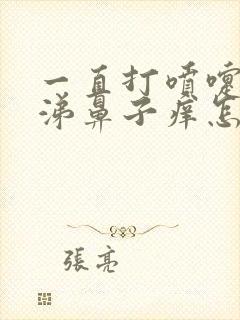 一直打喷嚏
涕鼻子痒怎
張亮